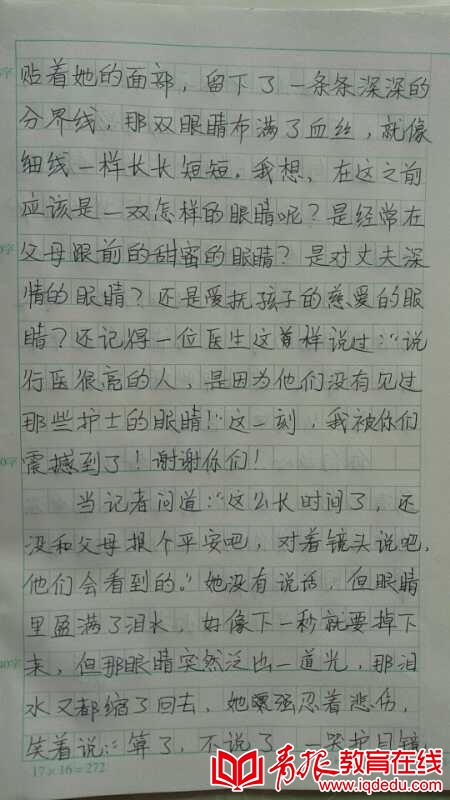 贴着她的面部，留下了一条条深深的
分界线，那双眼睛布满了血丝，就像
细线一样长长短短。我想，在这之前
应该是一双怎样的眼睛呢？是经常在
父母眼前的甜密的眼睛？是对丈夫深
情的眼睛？还是爱抚孩子的慈爱的眼
睛？还记得一位医生这样说过：“说
行医很亮的人，是因为他们没有见过
那些护士的眼睛！”这一刻，我被你们
震撼到了！谢谢你们！
当记者问道：“这么长时间了，还
没和父母报个平安吧，对着镜头说吧，
他们会看到的。”她没有说话，但眼睛
里盈满了泪水，好像下一秒就要掉下
来，但那眼睛突然泛出一道光，那泪
水又都缩了回去，她强忍着悲伤，
笑着说：算了，不说了，一哭护目镜
17×16=272
青报教育在线
www.iqdedu.com